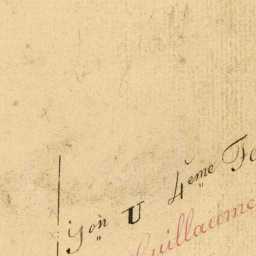 yon U 4eme
Guillaume